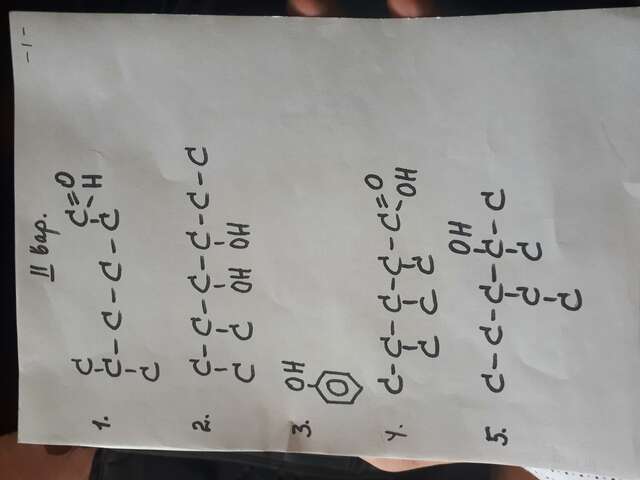 -1-
II вар.
C=O
C H
1. C-C-C-C
C
2. C-C-C-C-C-C
C C OH OH
OH
3.
4. C-C-C-C-C=O
C C C OH
OH
5. C-C-C-C-C
C C
C